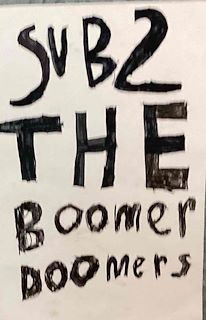 SUB2
THE
Boomer
DOOmers